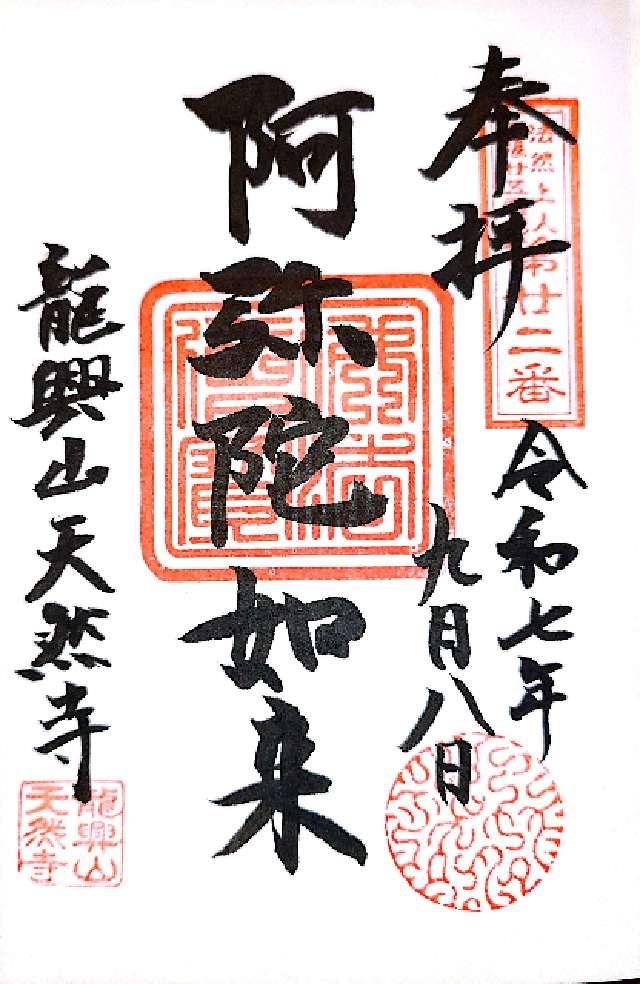 奉拝
法然上人
廿二番
令和七年
九月八日
阿弥陀如来
龍興山天然寺
龍興山
天然寺